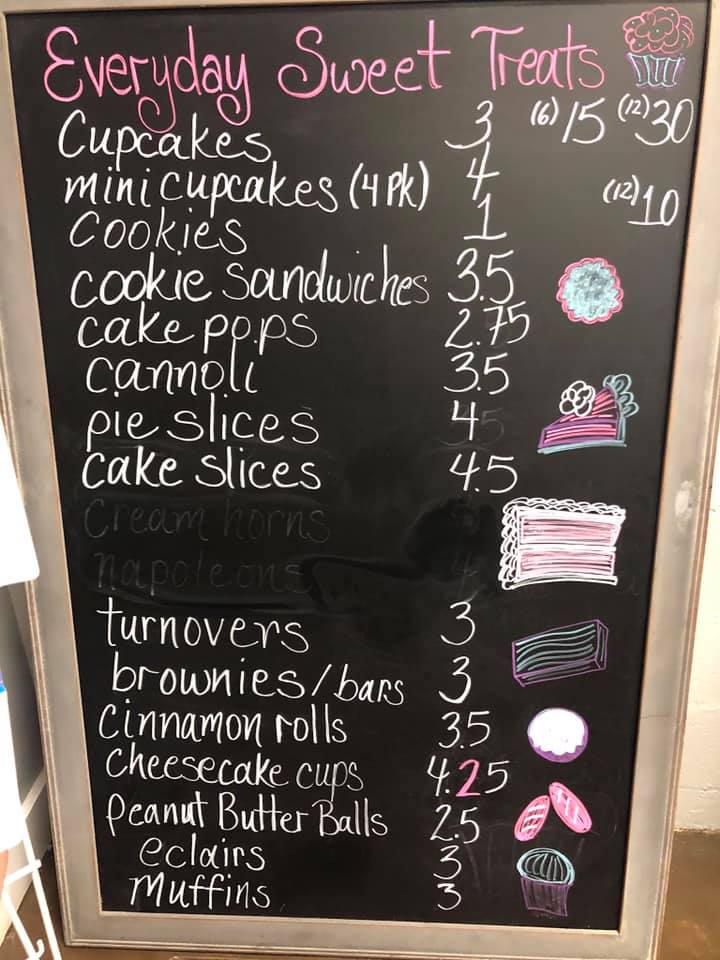 Everyday Sweet Treats
Cupcakes 3 (6) 15 (12) 30
mini cupcakes (4 Pk) 4
cookies 1 (12) 10
cookie sandwiches 3.5
cake pops 2.75
cannoli 3.5
pie slices 4
cake slices 4.5
cream horns
napoleons 4
turnovers 3
brownies/bars 3
cinnamon rolls 3.5
cheesecake cups 4.25
Peanut Butter Balls 2.5
eclairs 3
muffins 3